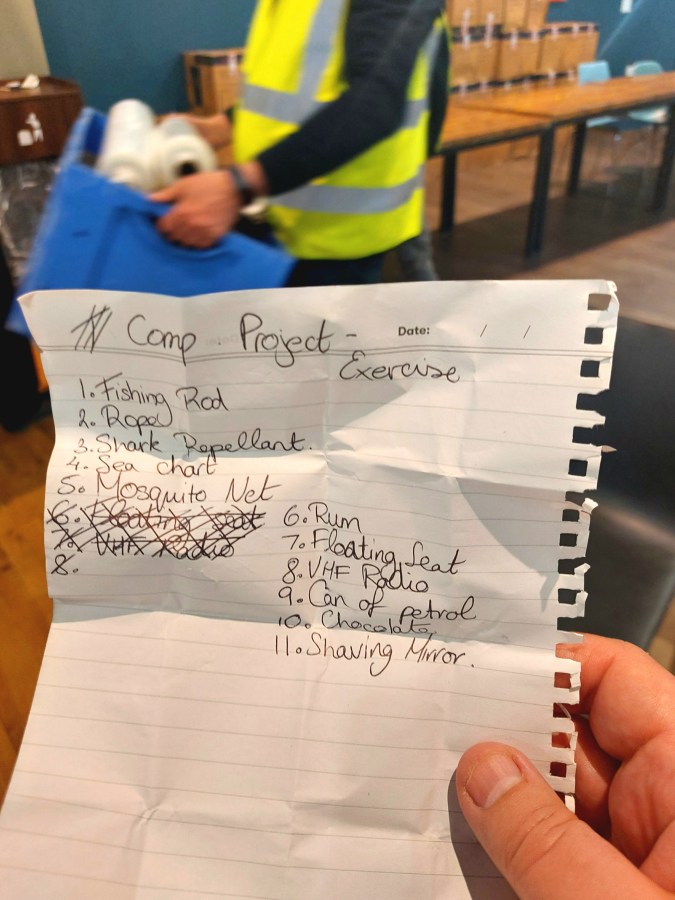 Comp Project -
Date: / /
Exercise
1. Fishing Rod
2. Rope
3. Shark Repellant.
4. Sea chart
5. Mosquito Net
6. Floating Seat
7. VHF Radio
8.
6. Rum
7. Floating Seat
8. VHF Radio
9. Can of petrol
10. Chocolate
11. Shaving Mirror.